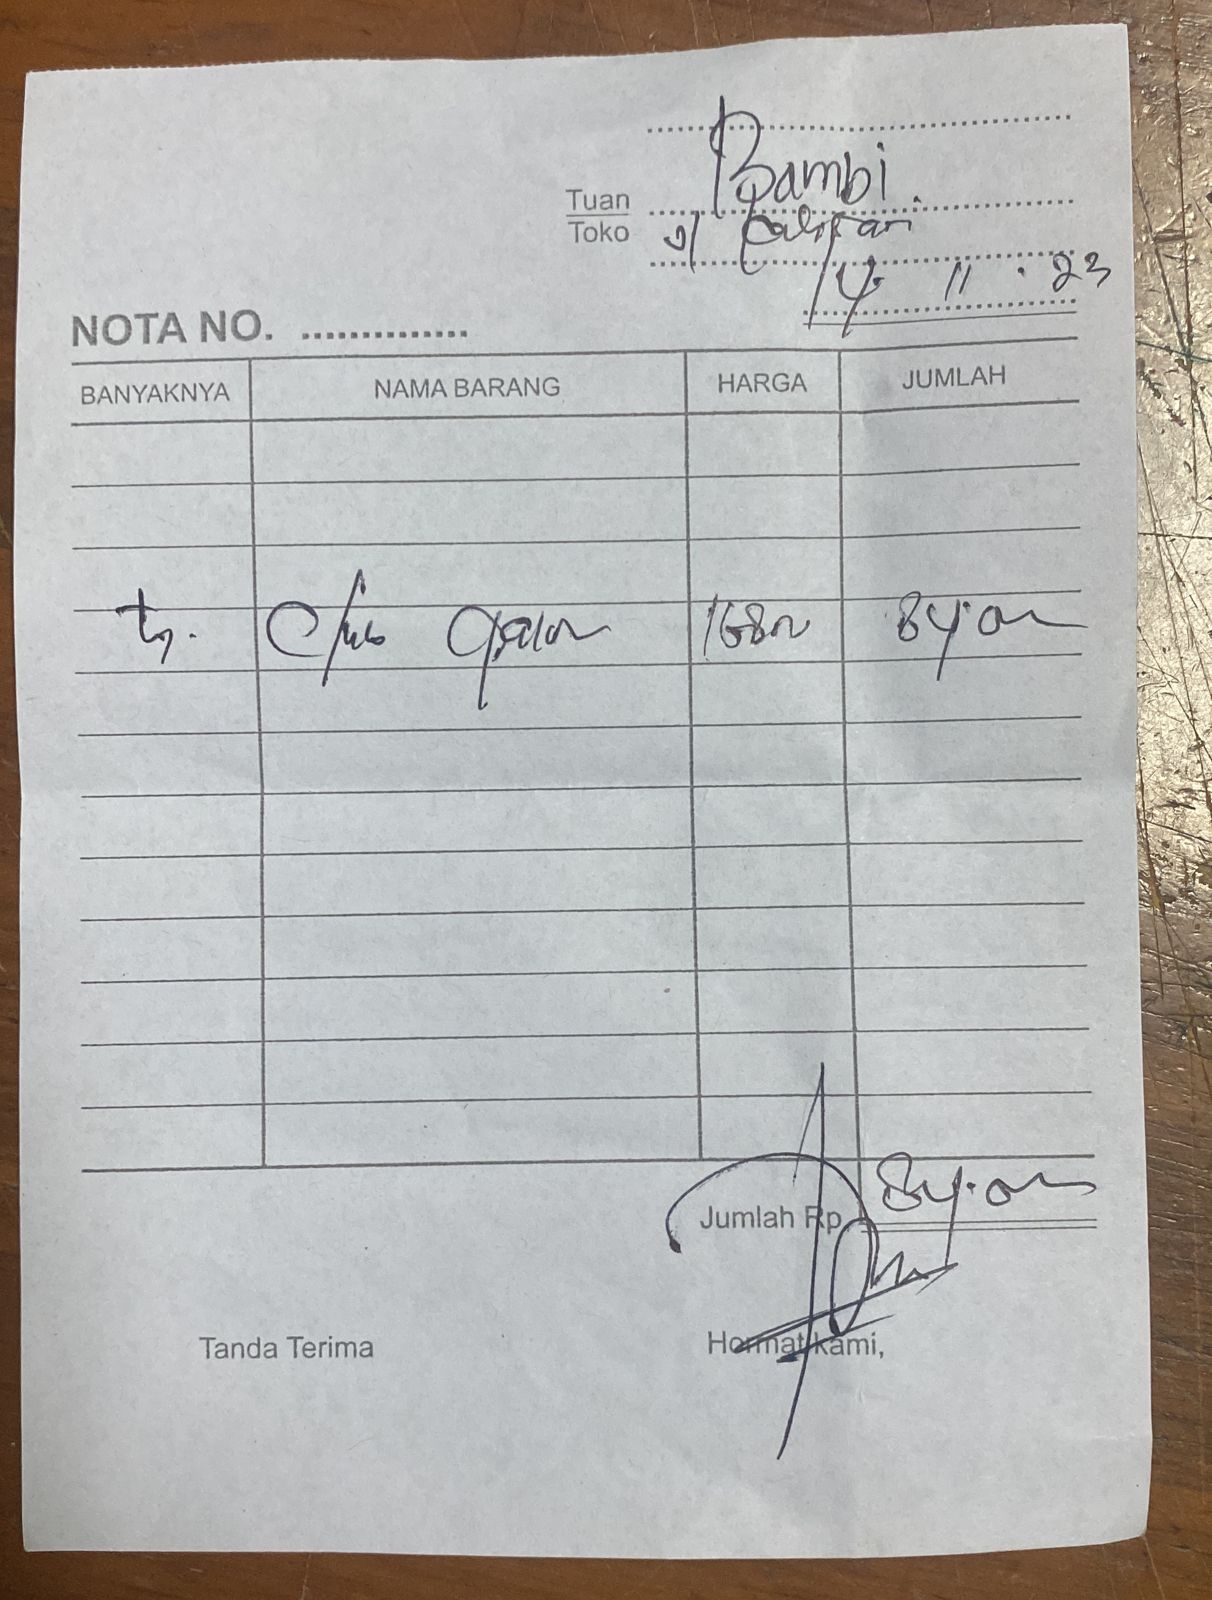 Bambi.
Tuan
Toko
Jl
14 . 11 . 23
NOTA NO. ..............
BANYAKNYA NAMA BARANG HARGA JUMLAH
Club Galon 168
84.
Jumlah Rp 84.
Tanda Terima Hormat kami,